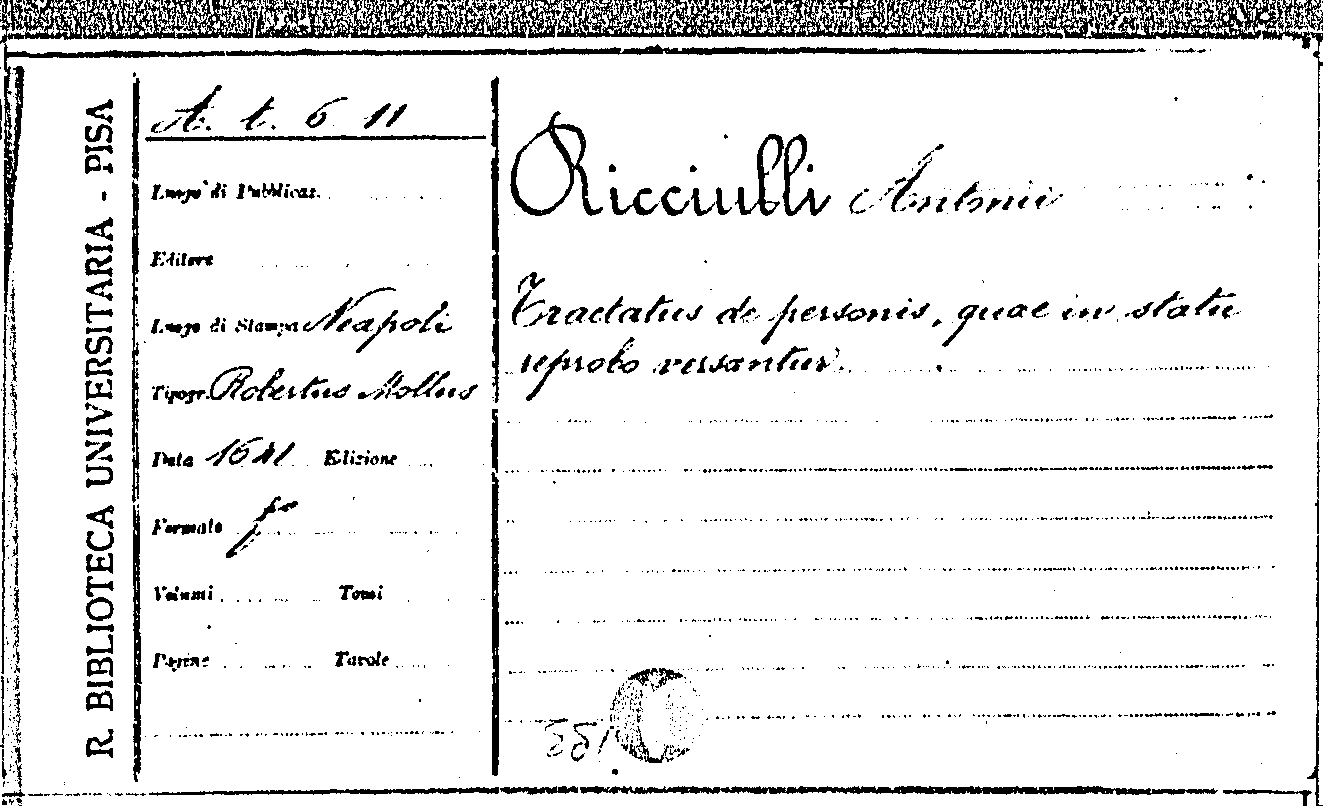 R. BIBLIOTECA UNIVERSITARIA - PISA
A. t. 6 11
Luogo di Pubblicaz.
Editore
Luogo di Stampa Neapoli
Tipogr. Robertus Mollus
Data 1641 Edizione
Formato fº
Volumi Tomi
Pagine Tavole
Ricciulli Antonii
Tractatus de personis, quae in statu
reprobo versantur.